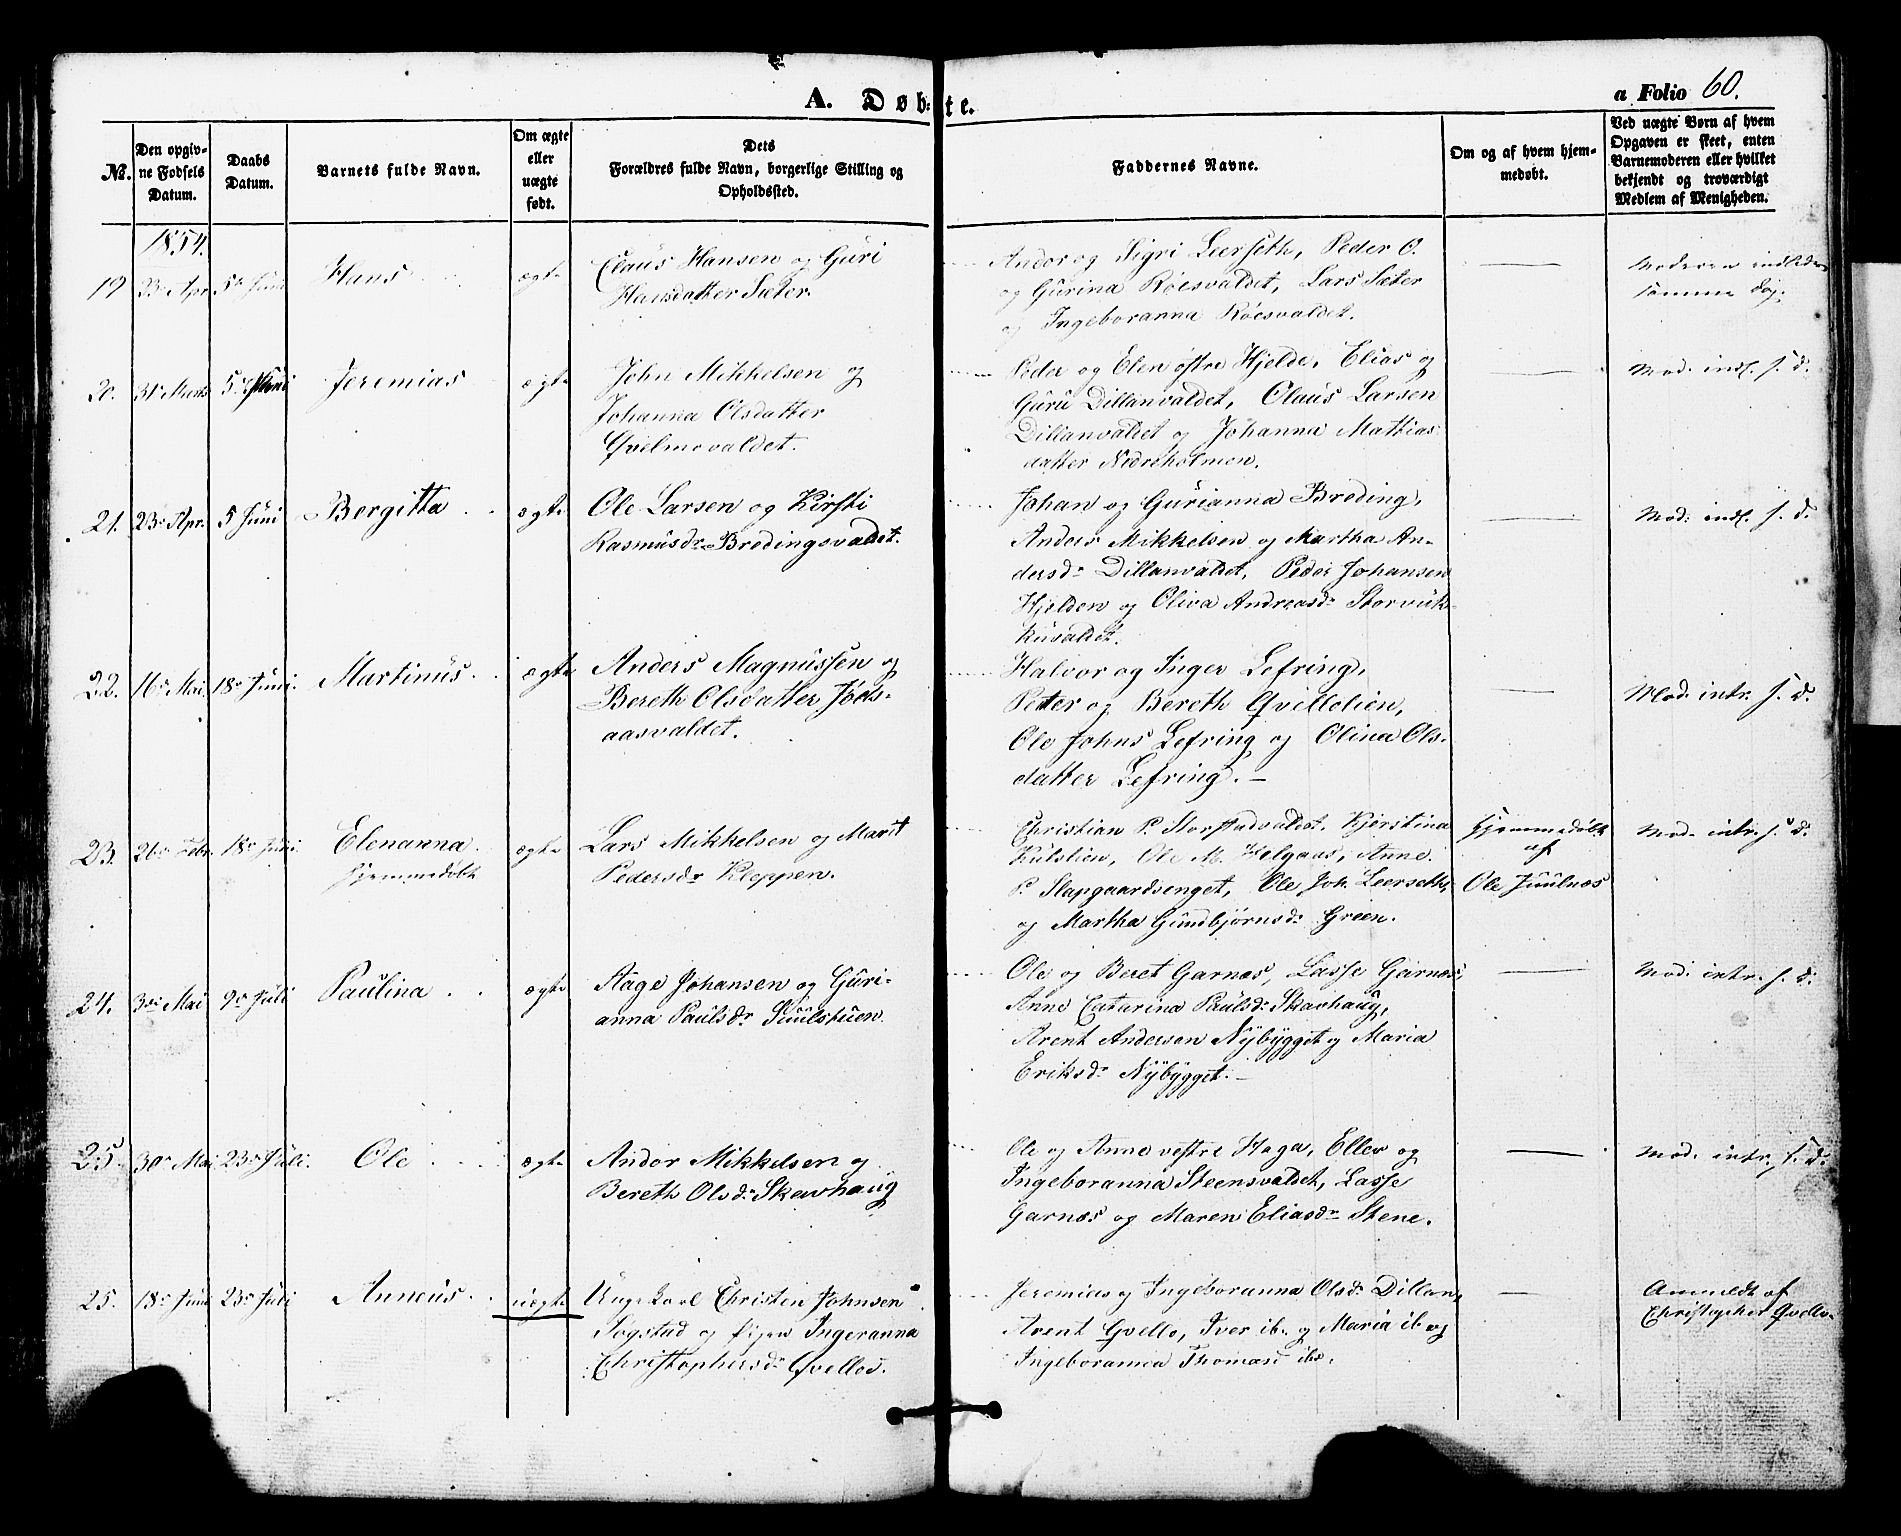 A. Døb-te.
a Folio 60.
No.
Den opgiv-
ne Fødsels
Datum.
Daabs
Datum.
Barnets fulde Navn.
Om ægte
eller
uægte
født.
Dets
Forældres fulde Navn, borgerlige Stilling og
Opholdssted.
Faddernes Navne.
Om og af hvem hjem-
medøbt.
Ved uægte Børn af hvem
Opgaven er skeet, enten
Barnemoderen eller hvilket
bekjendt og troværdigt
Medlem af Menigheden.
1854.
19 23 Apr 5 Juni Hans ægte
Claus Hansen og Guri
Hansdatter Sæter.
Andor og Sigri Leerseth, Peder O.
og Gurina Röesvaldet, Lars Sæter
og Ingeboranna Röesvaldet.
Moderen indleder
samme Dag.
20. 31 Marts 5 Juni Jeremias ægte
John Mikkelsen og
Johanna Olsdatter
Qvelmovaldet.
Peder og Elen östre Hjelde, Elias og
Guru Dillanvaldet, Claus Larsen
Dillanvaldet og Johanna Mathias
datter Nedreholmen.
Mod. indl. s. d.
21. 23 Apr. 5 Juni Bergitta ægte
Ole Larsen og Kirsti
Rasmusdr Bredingsvaldet.
Johan og Gurianna Breding,
Anders Mikkelsen og Martha An-
dersdr Dillanvaldet, Peder Johansen
Hjelden og Oliva Andreasdr Storvuk-
kuvaldet.
Mod: indl. s. d.
22. 16 Mai 18 Juni. Martinus ægte
Anders Magnussen og
Bereth Olsdatter Jøds-
aasvaldet.
Halvor og Inger Lefring,
Peter og Bereth Qvillolien,
Ole Johns Lefring og Olina Ols-
datter Lefring.
Mod. intr. s. d.
23. 26 Febr. 18 Juni Elenanna
hjemmedøbt
ægte
Lars Mikkelsen og Marit
Pedersdr Kloppen.
Christian P. Storstadvaldet, Kjerstina
Kulslien, Ole M. Helgaas, Anne
P. Slapgaardsenget, Ole Joh. Leerseth,
og Martha Gundbjørnsdr Green.
hjemmedøbt
af
Ole Juulnæs
Mod. intr. s. d.
24. 3 Mai 9 Juli Paulina ægte
Aage Johansen og Guri-
anna Paulsdr Suulstuen.
Ole og Beret Garnæs, Lasse Garnæs,
Anne Catarina Paulsdr Skavhaug,
Arent Andersen Nybygget og Maria
Eriksdr Nybygget.
Mod. intr. s. d.
25. 30 Mai 23 Juli. Ole ægte
Andor Mikkelsen og
Bereth Olsdr Skavhaug
Ole og Anne vestre Haga, Ellev og
Ingeboranna Steensvaldet, Lasse
Garnæs og Maren Eliasdr Stene.
Mod. intr. s. d.
25. 18 Juni 23 Juli Anneus uægte
Ungekarl Christen Johnsen
Togstad og Pigen Ingeranna
Christophersdr Qvello.
Jeremias og Ingeboranna Olsdr Dillan,
Arent Qvello, Iver ib. og Maria ib. og
Ingeboranna Thomasd ib.
Anmeldt af
Christopher Qvello.